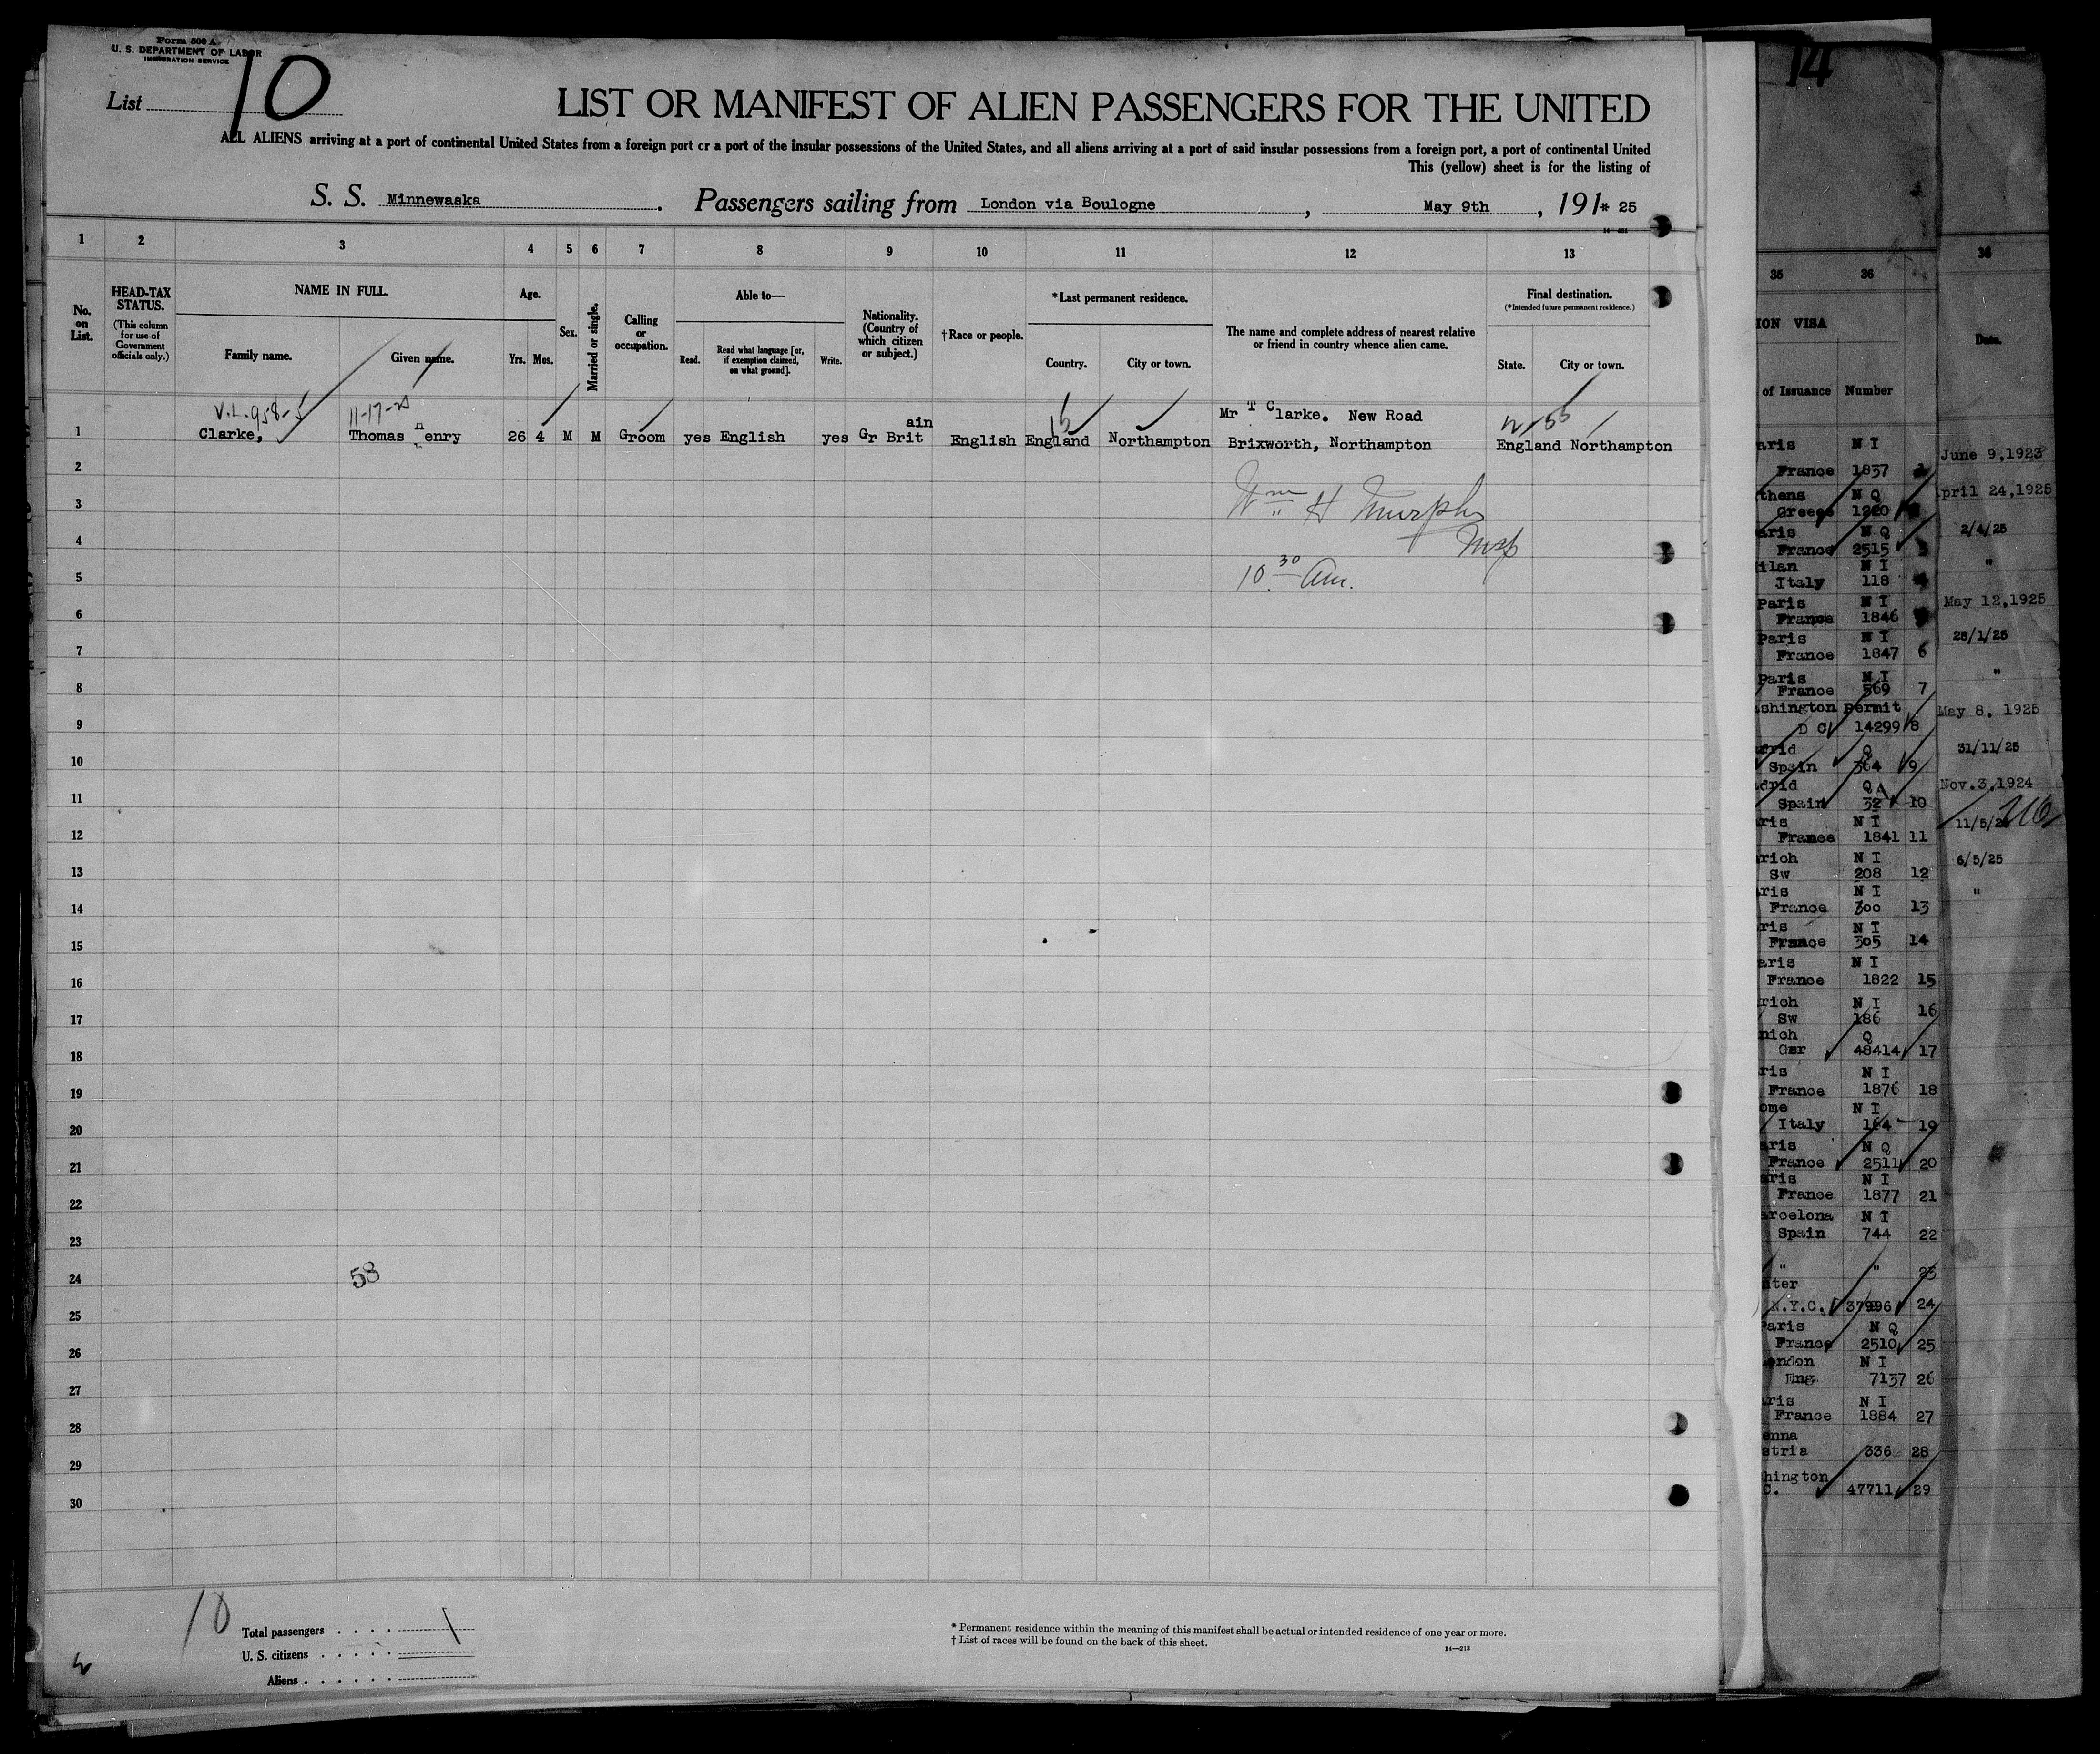 Form 500 A.
U. S. DEPARTMENT OF LABOR
IMMIGRATION SERVICE
List 10
LIST OR MANIFEST OF ALIEN PASSENGERS FOR THE UNITED
ALL ALIENS arriving at a port of continental United States from a foreign port or a port of the insular possessions of the United States, and all aliens arriving at a port of said insular possessions from a foreign port, a port of continental United
This (yellow) sheet is for the listing of
S. S. Minnewaska. Passengers sailing from London via Boulogne, May 9th, 191* 25
1 2 3 4 5 6 7 8 9 10 11 12 13
No. on List.
HEAD-TAX STATUS.
(This column for use of Government officials only.)
NAME IN FULL.
Family name. Given name.
Age.
Yrs. Mos.
Sex.
Married or single.
Calling or occupation.
Able to—
Read. Read what language [or, if exemption claimed, on what ground]. Write.
Nationality. (Country of which citizen or subject.)
†Race or people.
*Last permanent residence.
Country. City or town.
The name and complete address of nearest relative or friend in country whence alien came.
Final destination.
(*Intended future permanent residence.)
State. City or town.
V.L. 958-5 11-17-25
1 Clarke, Thomas Henry 26 4 M M Groom yes English yes Gr Britain English England Northampton Mr T Clarke. New Road
Brixworth, Northampton England Northampton
2
3
4
5
6
7
8
9
10
11
12
13
14
15
16
17
18
19
20
21
22
23
24
25
26
27
28
29
30
Wm H Murphy
Insp
10 30 Am.
58
10
Total passengers
U. S. citizens
Aliens
* Permanent residence within the meaning of this manifest shall be actual or intended residence of one year or more.
† List of races will be found on the back of this sheet.
14—213
14
35 36
ION VISA
of Issuance Number
aris N I
France 1837
thens N Q
Greece 1220
aris N Q
France 2515
ilan N I
Italy 118
Paris N I
France 1846
Paris N I
France 1847 6
Paris N I
France 569 7
shington Permit
D C 14299 8
Q
Spain 364 9
drid Q A
Spain 32 10
ris N I
France 1841 11
rich N I
Sw 208 12
ris N I
France 300 13
ris N I
France 305 14
aris N I
France 1822 15
rich N I
Sw 186 16
nich Q
Ger 48414 17
ris N I
France 1876 18
ome N I
Italy 164 19
aris N Q
France 2511 20
aris N I
France 1877 21
rcelona N I
Spain 744 22
" " 23
N.Y.C. 37996 24
Paris N Q
France 2510 25
ondon N I
Eng. 7137 26
ris N I
France 1884 27
enna
stria 336 28
hington
C. 47711 29
36
Date.
June 9,1923
pril 24,1925
2/4/25
"
May 12,1925
28/1/25
"
May 8, 1925
31/11/25
Nov.3,1924
11/5/2
6/5/25
"